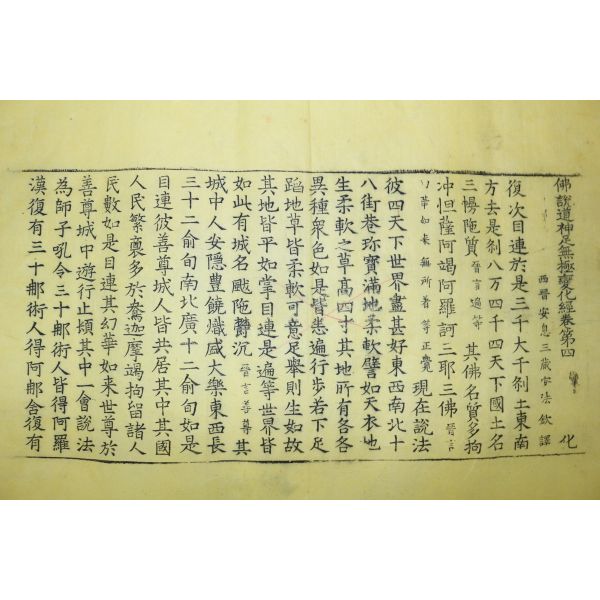 佛說道神足無極變化經卷第四 化
西晉安息三藏安法欽譯
復次目連於是三千大千刹土東南
方去是刹八万四千四天下國土名
三𢢔陁質 晉言遍等 其佛名質多拘
冲怛薩阿竭阿羅訶三耶三佛 晉言
幻華如來無所著等正覺 現在說法
彼四天下世界盡甚好東西南北十
八街巷珎寶滿地柔軟譬如天衣也
生柔軟之草髙四寸其地所有各各
異種衆色如是皆悉遍行步若下足
蹈地草皆柔軟可意足舉則生如故
其地皆平如掌目連是遍等世界皆
如此有城名颰陁欝沉 晉言善尊 其
城中人安隱豊饒熾盛大樂東西長
三十二俞旬南北廣十二俞旬如是
目連彼善尊城人皆共居其中其國
人民繁裏多於鴦迦摩竭拘留諸人
民數如是目連其幻華如來世尊於
善尊城中遊行止頃其中一會說法
為師子吼令三十𨙻術人皆得阿羅
漢復有三十𨙻術人得阿𨙻含復有